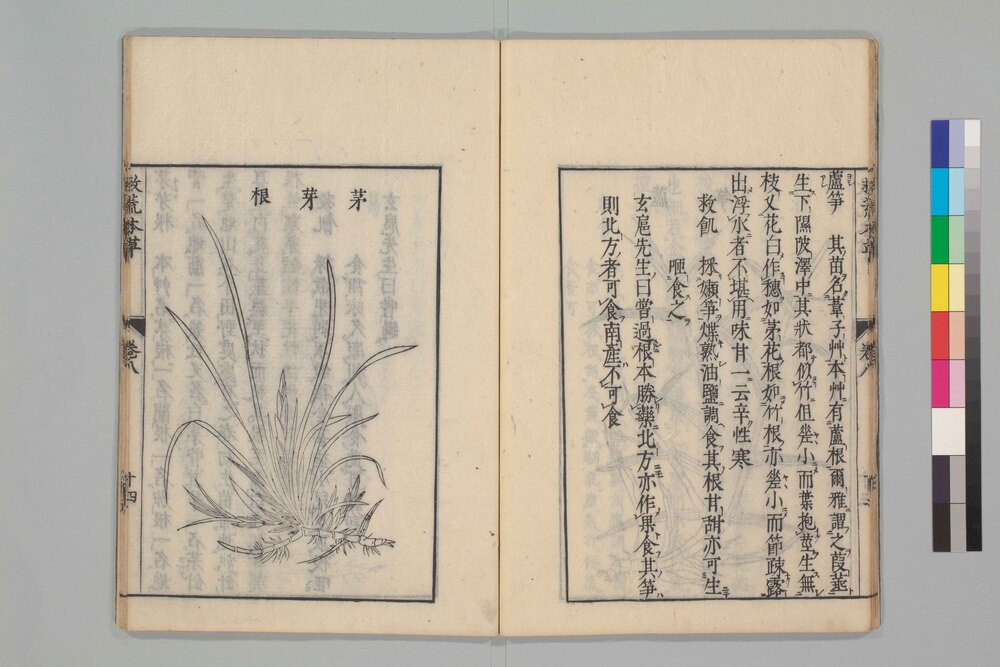 蘆笋　其苗名葦子艸本艸有蘆根爾雅謂之葭華
生下隰陂澤中其狀都似竹但差小而葉抱莖生無
枝叉花白作穗如茅花根如竹根亦差小而節疎露
出浮水者不堪用味甘一云辛性寒
救飢　採嫩笋煠熟油鹽調食其根甘甜亦可生
咂食之
玄扈先生曰嘗過根本勝藥北方亦作果食其笋
則北方者可食南產不可食
茅芽根
救荒本草
卷八
十四